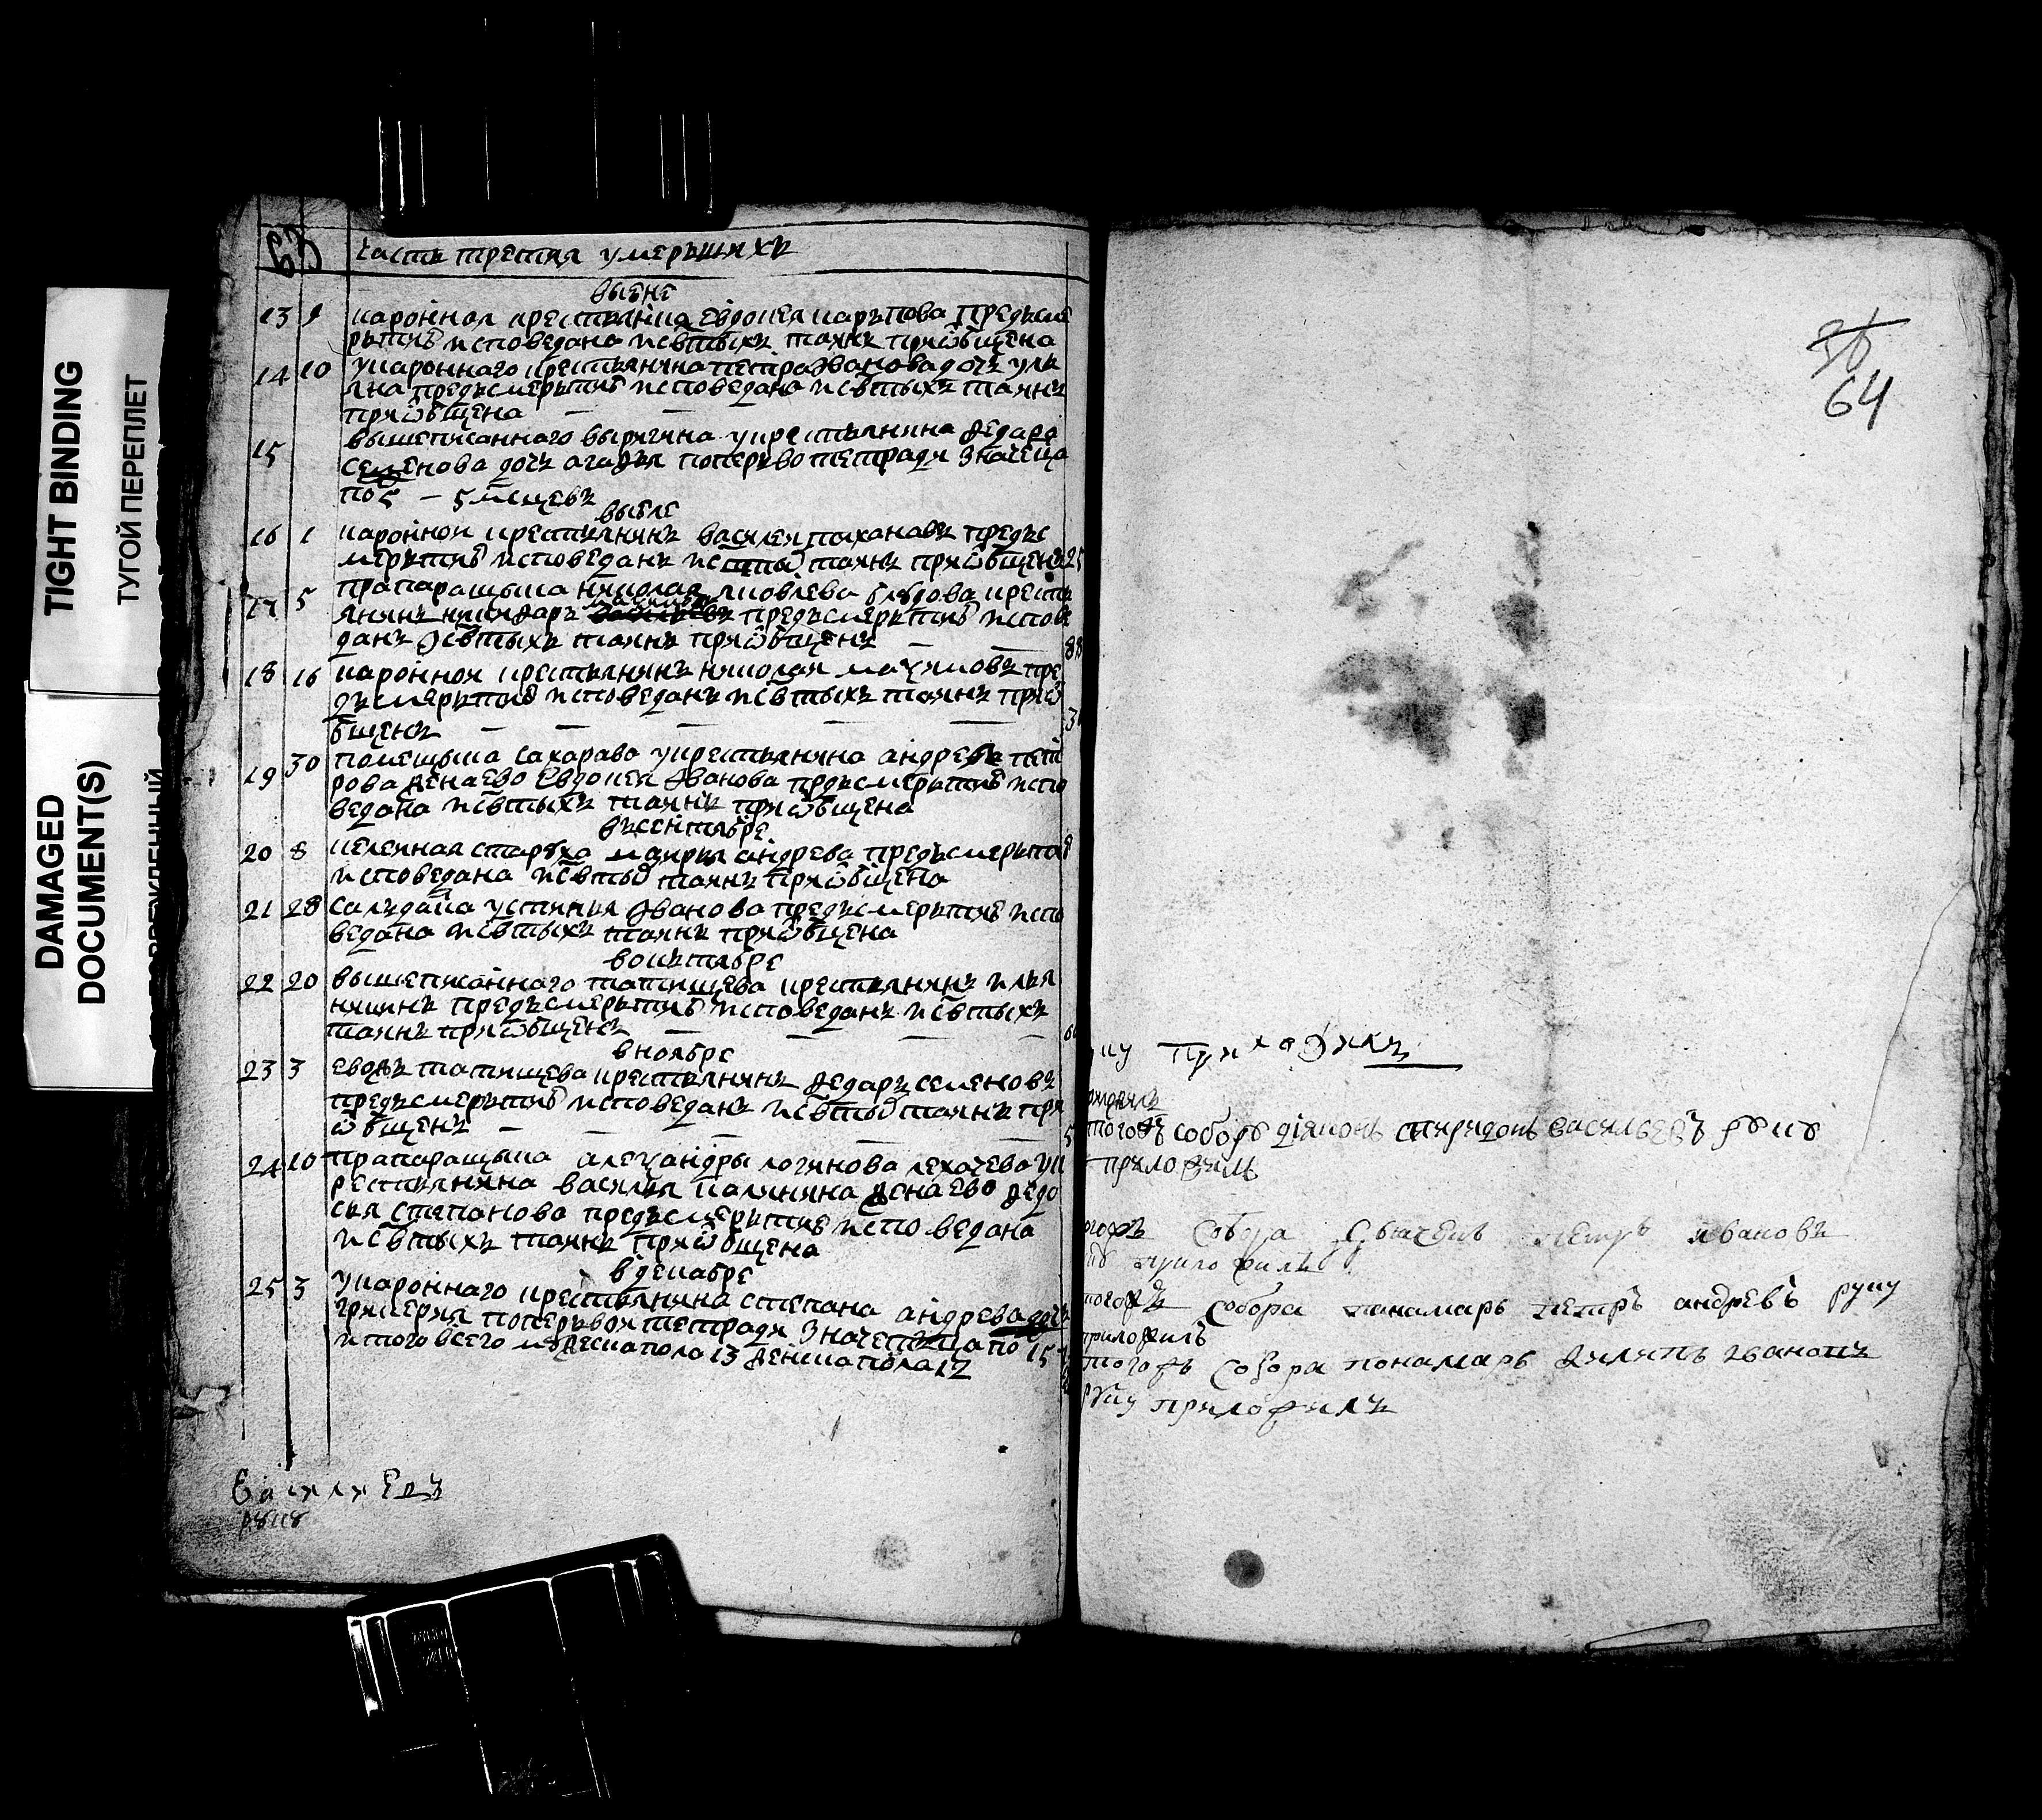 TIGHT BINDING
ТУГОЙ ПЕРЕПЛЕТ
DAMAGED
DOCUMENT(S)
63
часть третия умеръшихъ
выюне
13 9 каронная крестьянка Евдокея карпова предъсме
ртию исповедана исвтыхъ таинъ приѡбщена
14 10 укаронного крестьянина петра Иванова дочь улья
на предъсмерътию исповедана исвтыхъ таинъ
приѡбщена
15 вышеписанного укрестьянина Федара
Семенова дочь агафья поперьво тетради значеща
по 5 - 5 мсцевъ
выюле
16 1 каронной крестьянинъ василей предъс
мерътию исповеданъ таинъ приѡбщенъ 25
17 5 прапаращика николая яковлева крестъ
янинъ предъсмерътию испове
данъ исвтыхъ таинъ приѡбщенъ
18 16 каронной крестьянинъ николай пре
дъсмерътию исповеданъ исвтыхъ таинъ приѡ
бщенъ
19 30 помещика сахарава укрестьянина андрея пет
рова женаево Евдокея Иванова предъсмерътию испо
ведана исвтыхъ таинъ приѡбщена
въсентябре
20 8 келейная старуха марья андрева предъсмерътию
исповедана таинъ приѡбщена
21 28 салъдатка устинья Иванова предъсмерътию испо
ведана исвтыхъ таинъ приѡбщена
вокътябре
22 20 вышеписанного татищева крестьянинъ илья
предъсмерътию исповеданъ исвтыхъ
таинъ приѡбщенъ
вноябре
23 3 евожъ татищева крестьянинъ Федаръ семеновъ
предъсмерътию исповеданъ таинъ при
ѡбщенъ
24 10 прапаращика алеѯандры логинова лехачева ук
рестьянина василья женаево Федо
сья степанова предъсмерътию исповедана
исвтыхъ таинъ приѡбщена
вдекабре
25 3 укаронного крестьянина степана андрева дочь
гликерия поперьвой тетради по 15
итого всего мужеска пола 13 женска пола 12
василиевъ
руку
64
ку приложилъ
тогожъ соборъ діяконъ спиридонъ васильевъ руку
приложилъ
собора петръ ивановъ
приложилъ
тогожъ собора панамарь петръ андревъ руку
приложилъ
тогожъ собора понамарь ивановъ
руку приложилъ